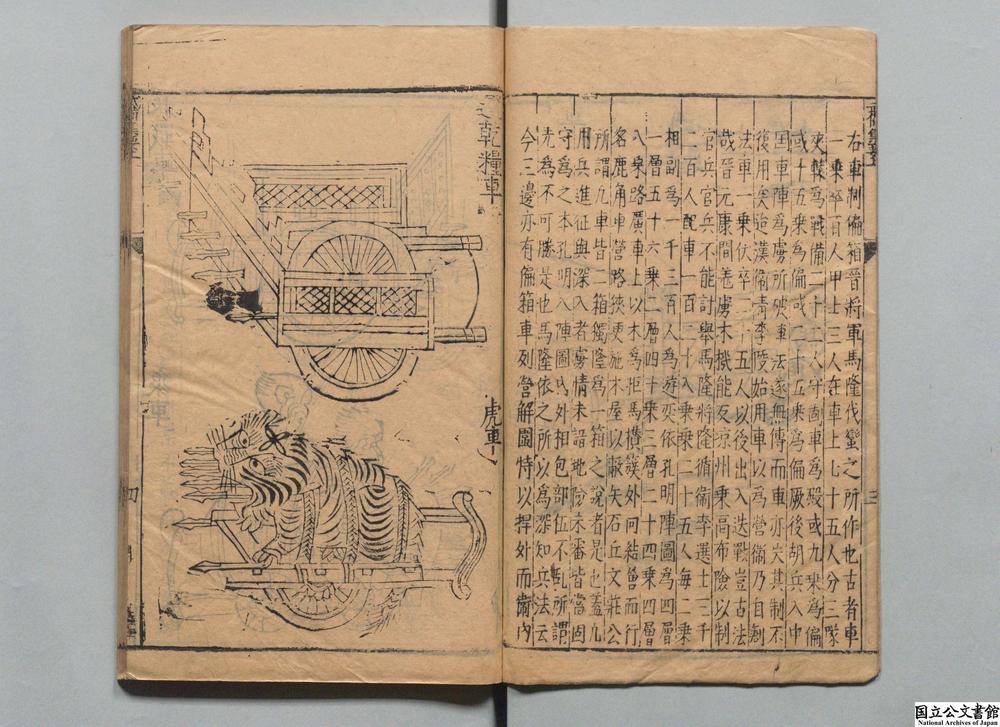 右車制偏箱晉將軍馬隆伐蠻之所作也古者車
一乘卒百人甲士三人在車上七十五人分三隊
夾轅為戰備二十二人守固車為殿或九乘為偏
或十五乘為偏或二十五乘為偏厥後胡兵入中
国車陣為虜所殃車法遂無傳而車亦失其制不
復用矣迨漢衛青李陵始用車以為營衛乃自創
法車一乘伏卒二十五人以後出入迭戰豈古法
哉晉元康間羌虜木機能反凉州乘高布險以制
官兵官兵不能討舉馬隆將隆循衛李選士三千
二百人配車一百二十八乘乘二十五人每二乘
相副為一千三百人為遊奕依孔明陣圖為四層
一層五十六乘二層四十乘三層二十四乘四層
八乘路廣車上以木為拒馬攢簇外向結營而行
名鹿角車營路狹更施木屋以蔽矢石丘文莊公
所謂九車皆二箱獨隆為一箱之說者是也蓋凡
用兵進征與深入者虜情未諳地險未審皆當固
守為之本孔明八陣圖內外相包部伍不亂所謂
先為不可勝是也馬隆依之所以為深知兵法云
今三邊亦有偏箱車列營解圍特以捍外而衛内
三
乾糧車
虎車
四
国立公文書館
National Archives of Japan